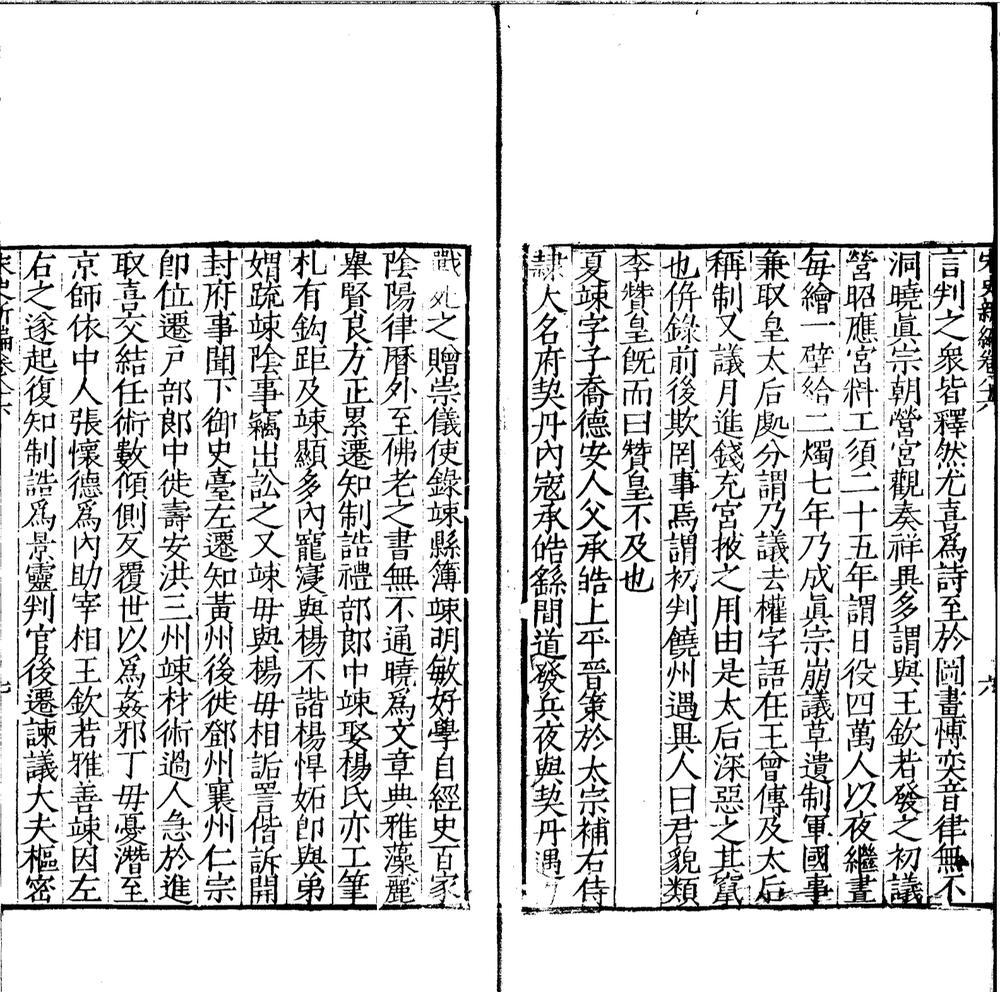 宋史新編卷八十六
言判之衆皆釋然尤喜爲詩至於圖畫博奕音律無不
洞曉眞宗朝營宮觀奏祥異多謂與王欽若發之初議
營昭應宮料工須二十五年謂日役四萬人以夜繼晝
每繪一壁給二燭七年乃成眞宗崩議草遺制軍國事
兼取皇太后處分謂乃議去權字語在王曾傳及太后
稱制又議月進錢充宮掖之用由是太后深惡之其竄
也併錄前後欺罔事焉謂初判饒州遇異人曰君貌類
李贊皇旣而曰贊皇不及也
夏竦字子喬德安人父承皓上平晉策於太宗補右侍
隷大名府契丹內寇承皓繇間道發兵夜與契丹遇
戰死之贈崇儀使錄竦縣簿竦明敏好學自經史百家
陰陽律曆外至佛老之書無不通曉爲文章典雅藻麗
舉賢良方正累遷知制誥禮部郎中竦娶楊氏亦工筆
札有鈎距及竦顯多內寵寖與楊不諧楊悍妬卽與弟
媦疏竦陰事竊出訟之又竦毋與楊毋相詬詈偕訴開
封府事聞下御史臺左遷知黃州後徙鄧州襄州仁宗
卽位遷戶部郎中徙壽安洪三州竦材術過人急於進
取喜交結任術數傾側反覆世以爲姦邪丁毋憂潛至
京師依中人張懷德爲內助宰相王欽若雅善竦因左
右之遂起復知制誥爲景靈判官後遷諫議大夫樞密
宋史新編卷八十六
七